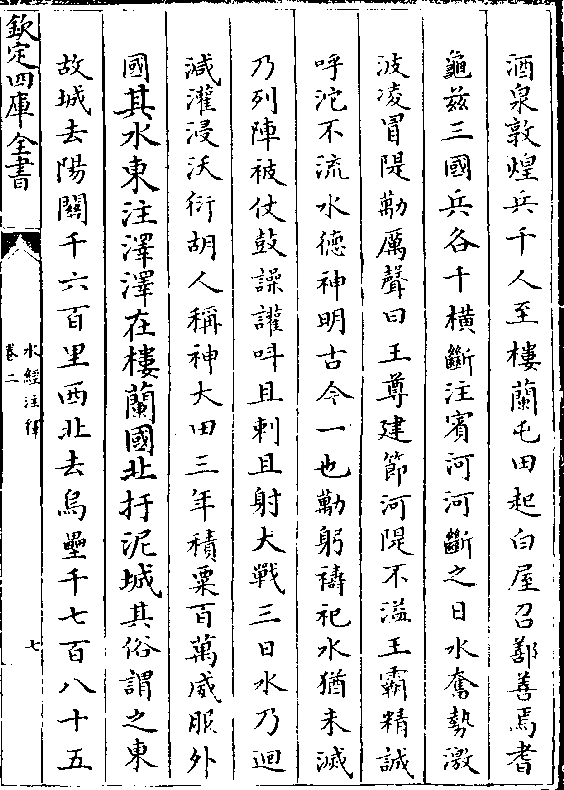 酒泉敦煌兵千人至樓蘭屯田起白屋召鄯善焉耆
龜兹三國兵各千横斷注賓河河斷之日水奮勢激
波凌冒隄勱厲聲曰王尊建節河隄不溢王霸精誠
呼沱不流水德神明古今一也勱躬禱祀水猶未滅
乃列陣被仗鼓譟讙呌且刺且射大戰三日水乃迴
減灌浸沃衍胡人稱神大田三年積粟百萬威服外
國其水東注澤澤在樓蘭國北扜泥城其俗謂之東
故城去陽關千六百里西北去烏壘千七百八十五
欽定四庫全書
水經注釋
卷二
七